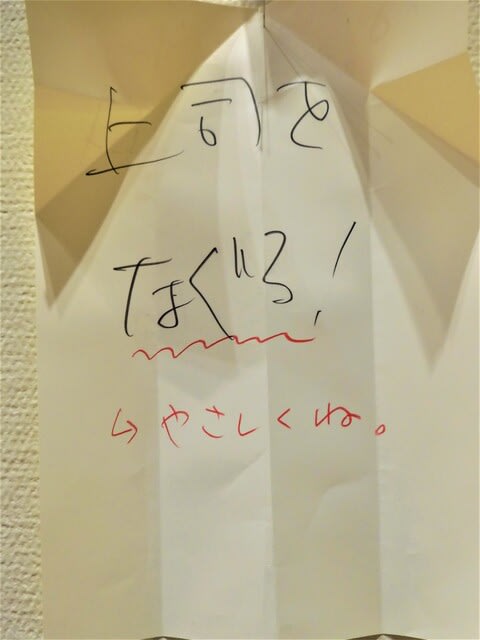 上司を
なぐる!
↳やさしくね。